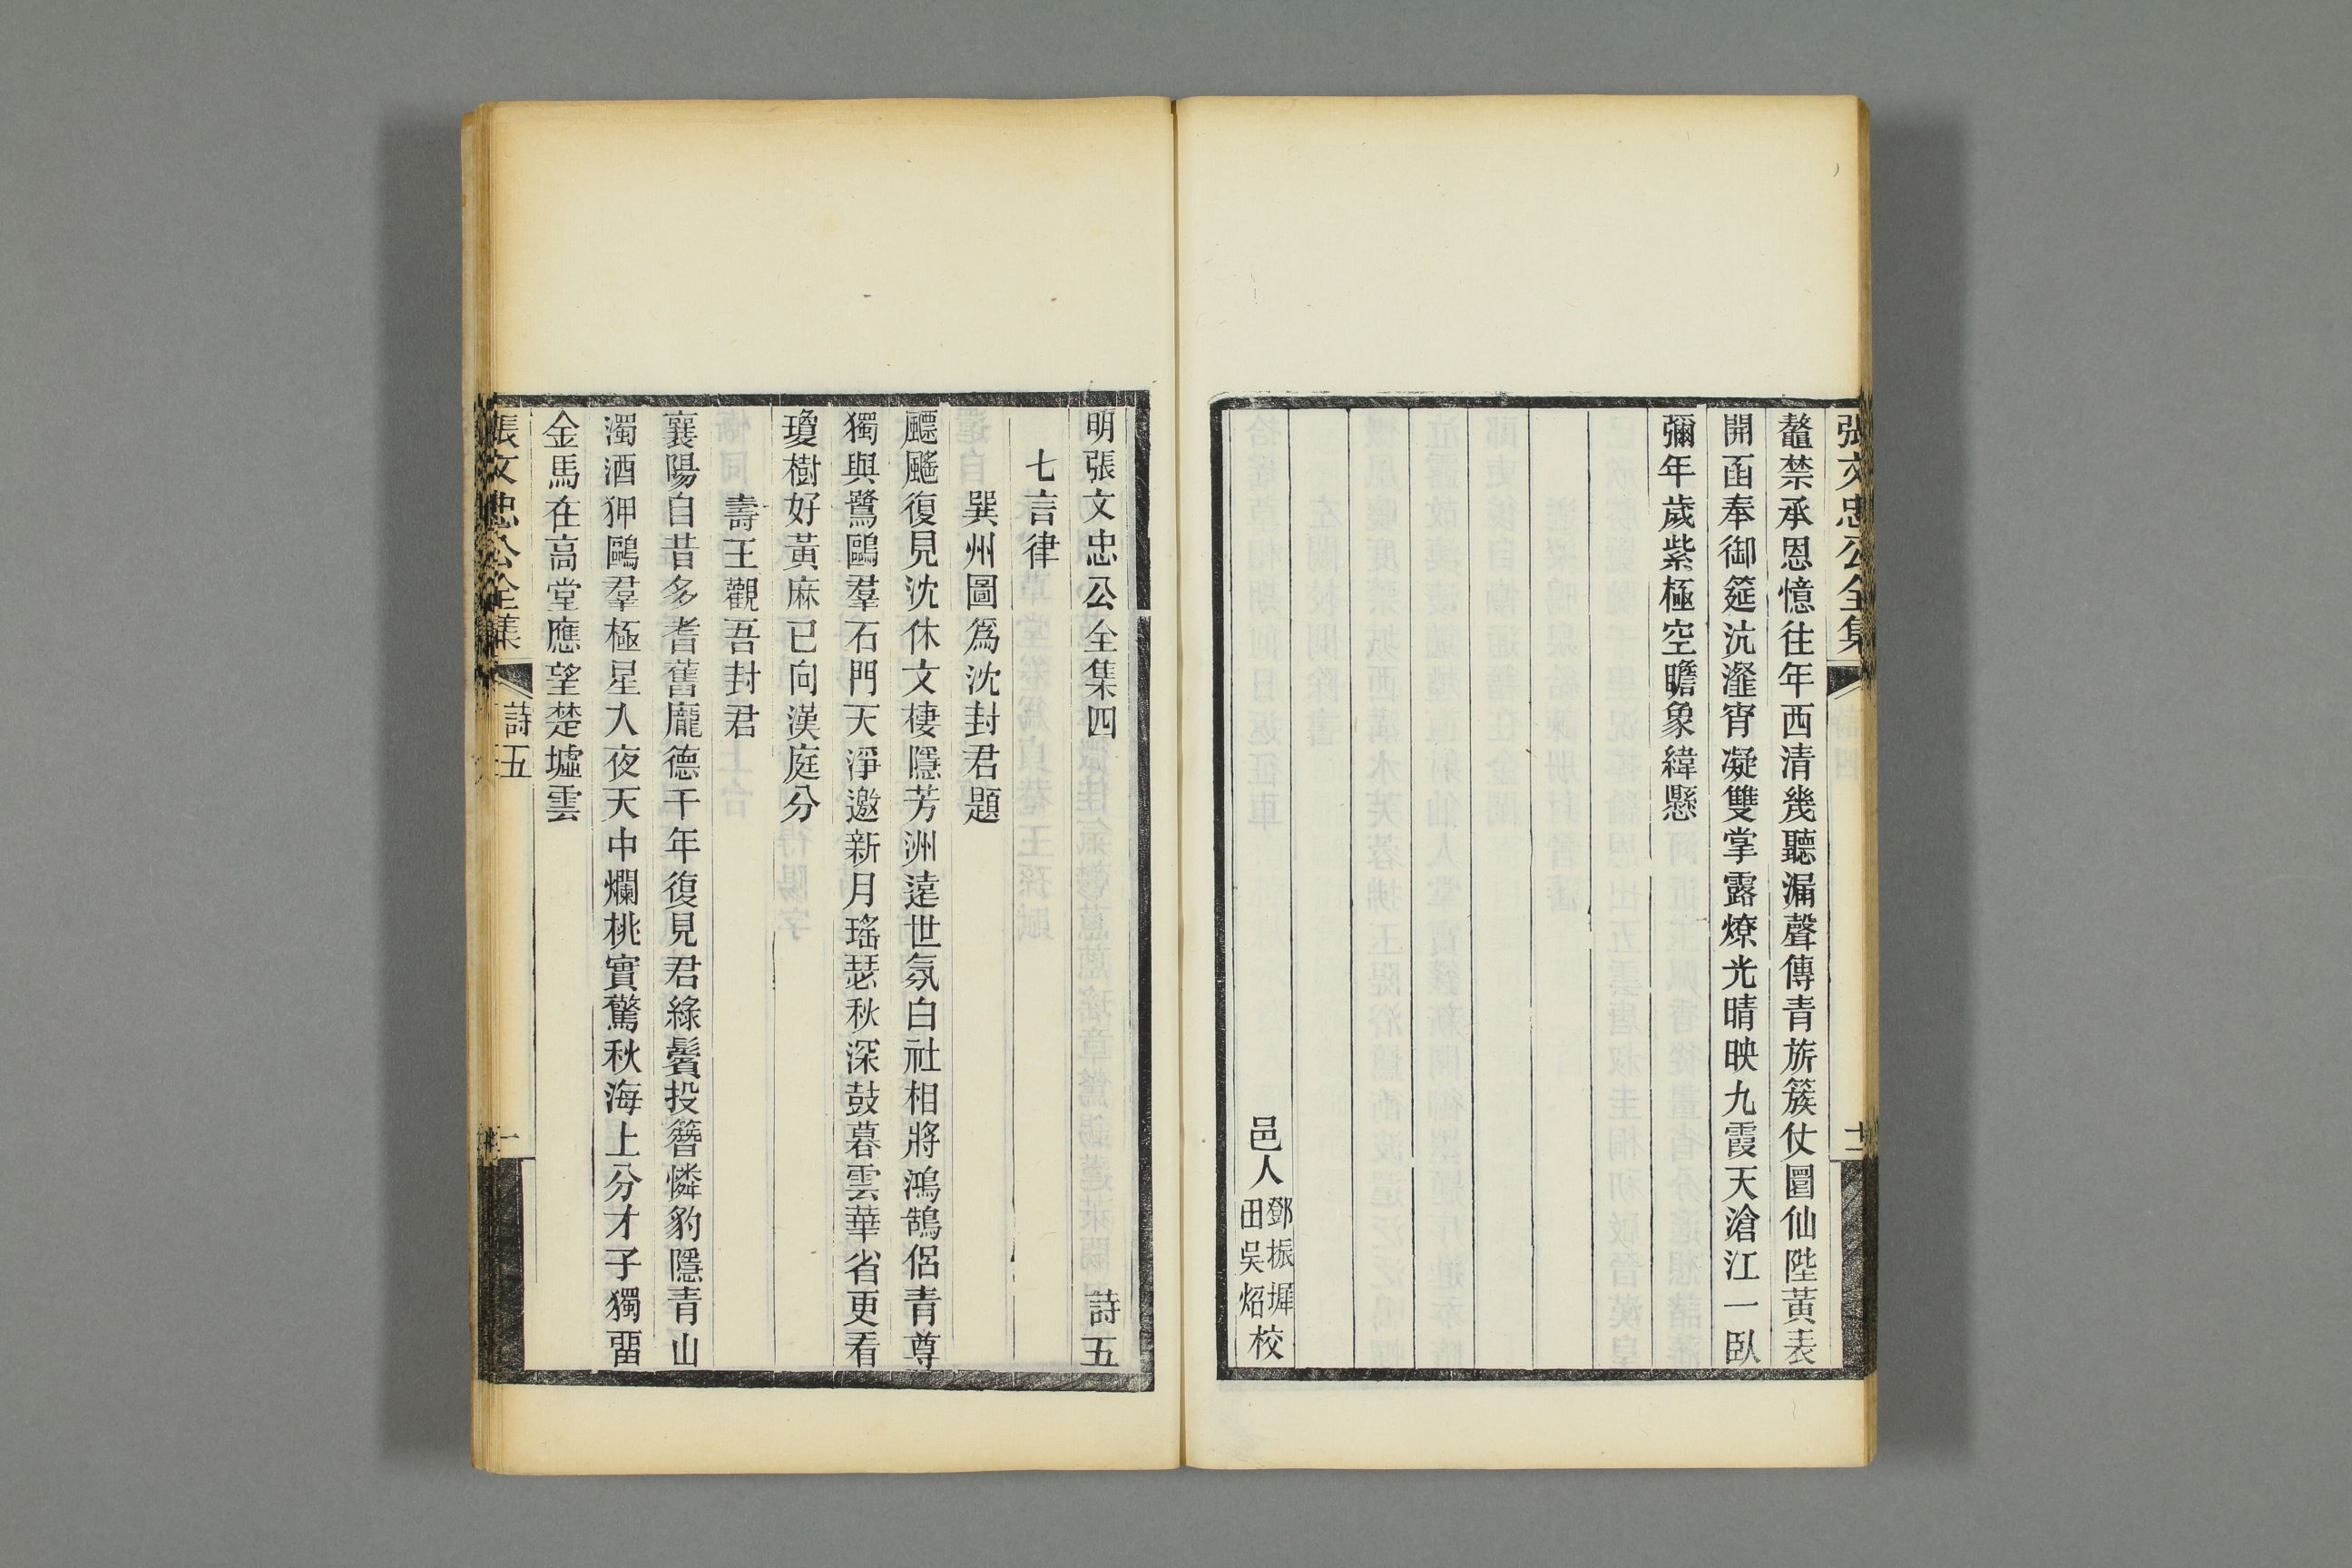 張文忠公全集
十二
鼇禁承恩憶往年西清幾聽漏聲傳青旂簇仗圜仙陛黃表
開函奉御筵沆瀣宵凝雙掌露燎光晴映九霞天滄江一臥
彌年歲紫極空瞻象緯懸
邑人
鄧振墀
田吳炤
校
明張文忠公全集四
詩五
七言律
巽州圖為沈封君題
飄颻復見沈休文棲隱芳洲遠世氛白社相將鴻鵠侶青尊
獨與鷺鷗羣石門天淨邀新月瑤瑟秋深鼓暮雲華省更看
瓊樹好黃麻已向漢庭分
壽王觀吾封君
襄陽自昔多耆舊龐德千年復見君綠鬢投簪憐豹隱青山
濁酒狎鷗羣極星入夜天中爛桃實驚秋海上分才子獨畱
金馬在高堂應望楚墟雲
張文忠公全集
詩五
一